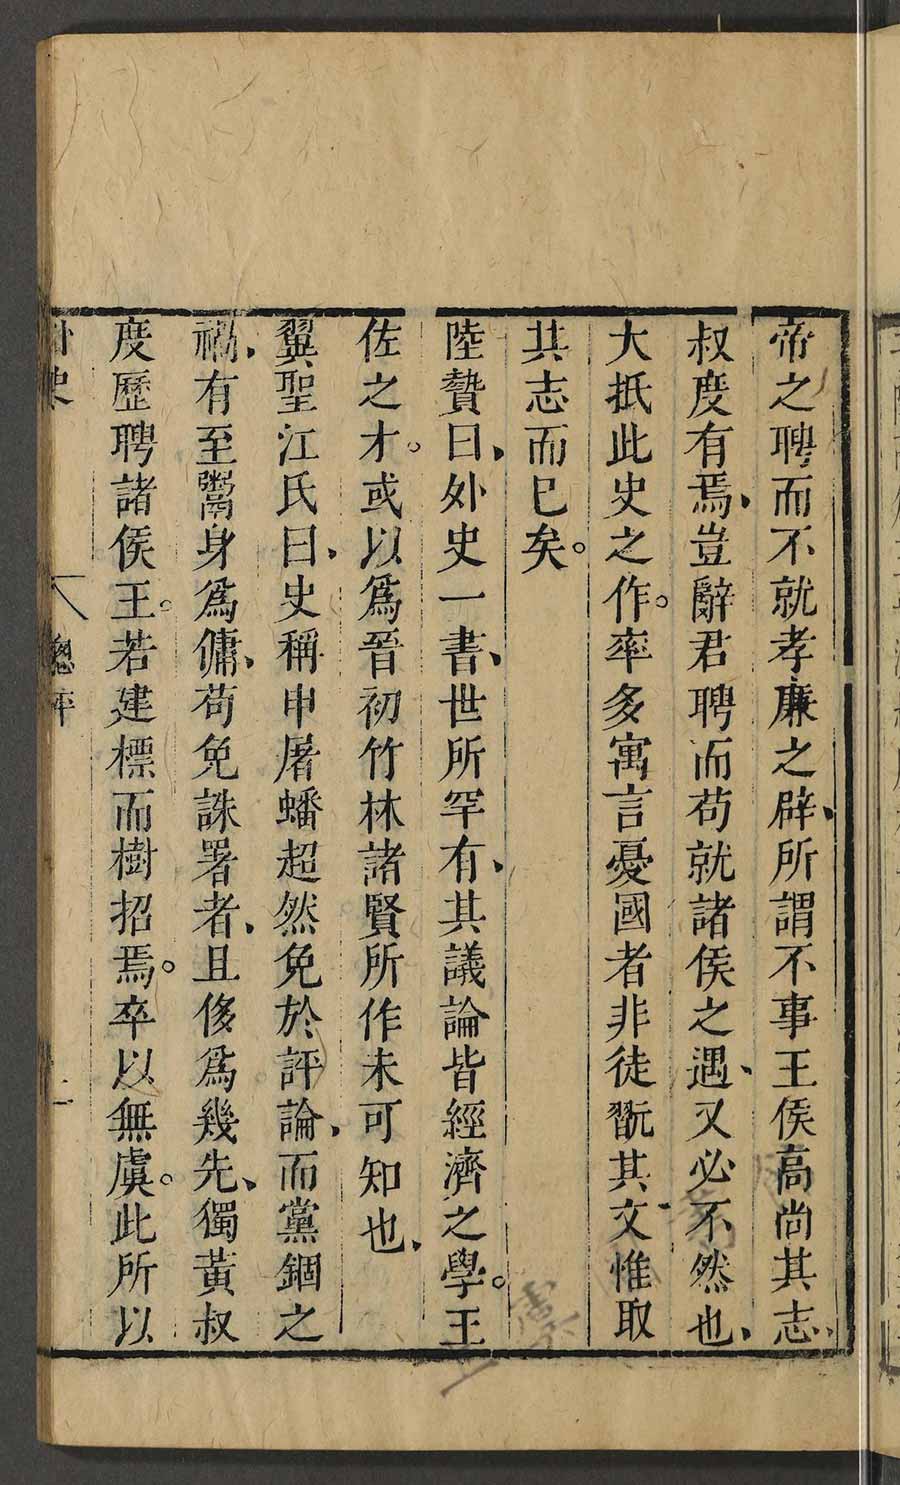 帝之聘而不就孝廉之辟、所謂不事王侯高尚其志、
叔度有焉、豈辭君聘而苟就諸侯之遇、又必不然也、
大抵此史之作。率多寓言憂國者非徒翫其文惟取
其志而已矣。
陸贄曰、外史一書、世所罕有、其議論皆經濟之學。王
佐之才。或以爲晉初竹林諸賢所作未可知也、
翼聖江氏曰、史稱申屠蟠超然免於評論、而黨錮之
禍、有至鬻身爲傭、苟免誅署者、且侈爲幾先、獨黃叔
度歷聘諸侯王。若建標而樹招焉。卒以無虞。此所以
外史
總評
二